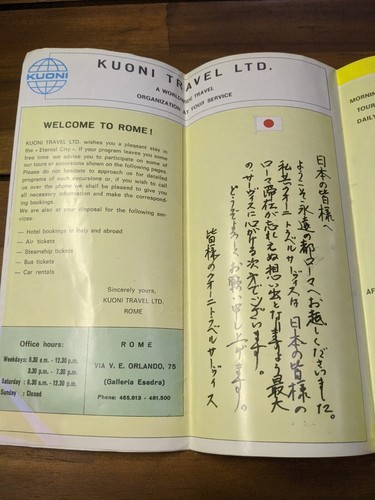 KUONI
KUONI TRAVEL LTD.
A WORLDWIDE TRAVEL
ORGANIZATION AT YOUR SERVICE
WELCOME TO ROME!
KUONI TRAVEL LTD. wishes you a pleasant stay in
the « Eternal City ». If your program leaves you some
free time we advise you to participate on some of
our tours or excursions shown on the following pages.
Please do not hesitate to approach us for detailed
programs of such excursions or, if you wish to call
us over the phone we shall be pleased to give you
all necessary information and make the correspond-
ing bookings.
We are also at your disposal for the following ser-
vices:
— Hotel bookings in Italy and abroad
— Air tickets
— Steamship tickets
— Bus tickets
— Car rentals
Sincerely yours,
KUONI TRAVEL LTD.
ROME
Office hours:
Weekdays: 8.30 a.m. - 12.30 p.m.
3.30 p.m. - 7.30 p.m.
Saturday : 8.30 a.m. - 12.30 p.m.
Sunday : Closed
ROME
VIA V. E. ORLANDO, 75
(Galleria Esedra)
Phone: 465.813 - 481.500
日本の皆様へ
ようこそ永遠の都ローマへお越しくださいました。
私共クオーニトラベルサーヴィスは日本の皆様の
ローマ滞在が忘れえぬ想い出となりますよう最大
のサーヴィスに心がける次第でございます。
どうぞよろしくお願い申し上げます。
皆様のクオーニトラベルサーヴィス
MORNING
TOUR
DAILY